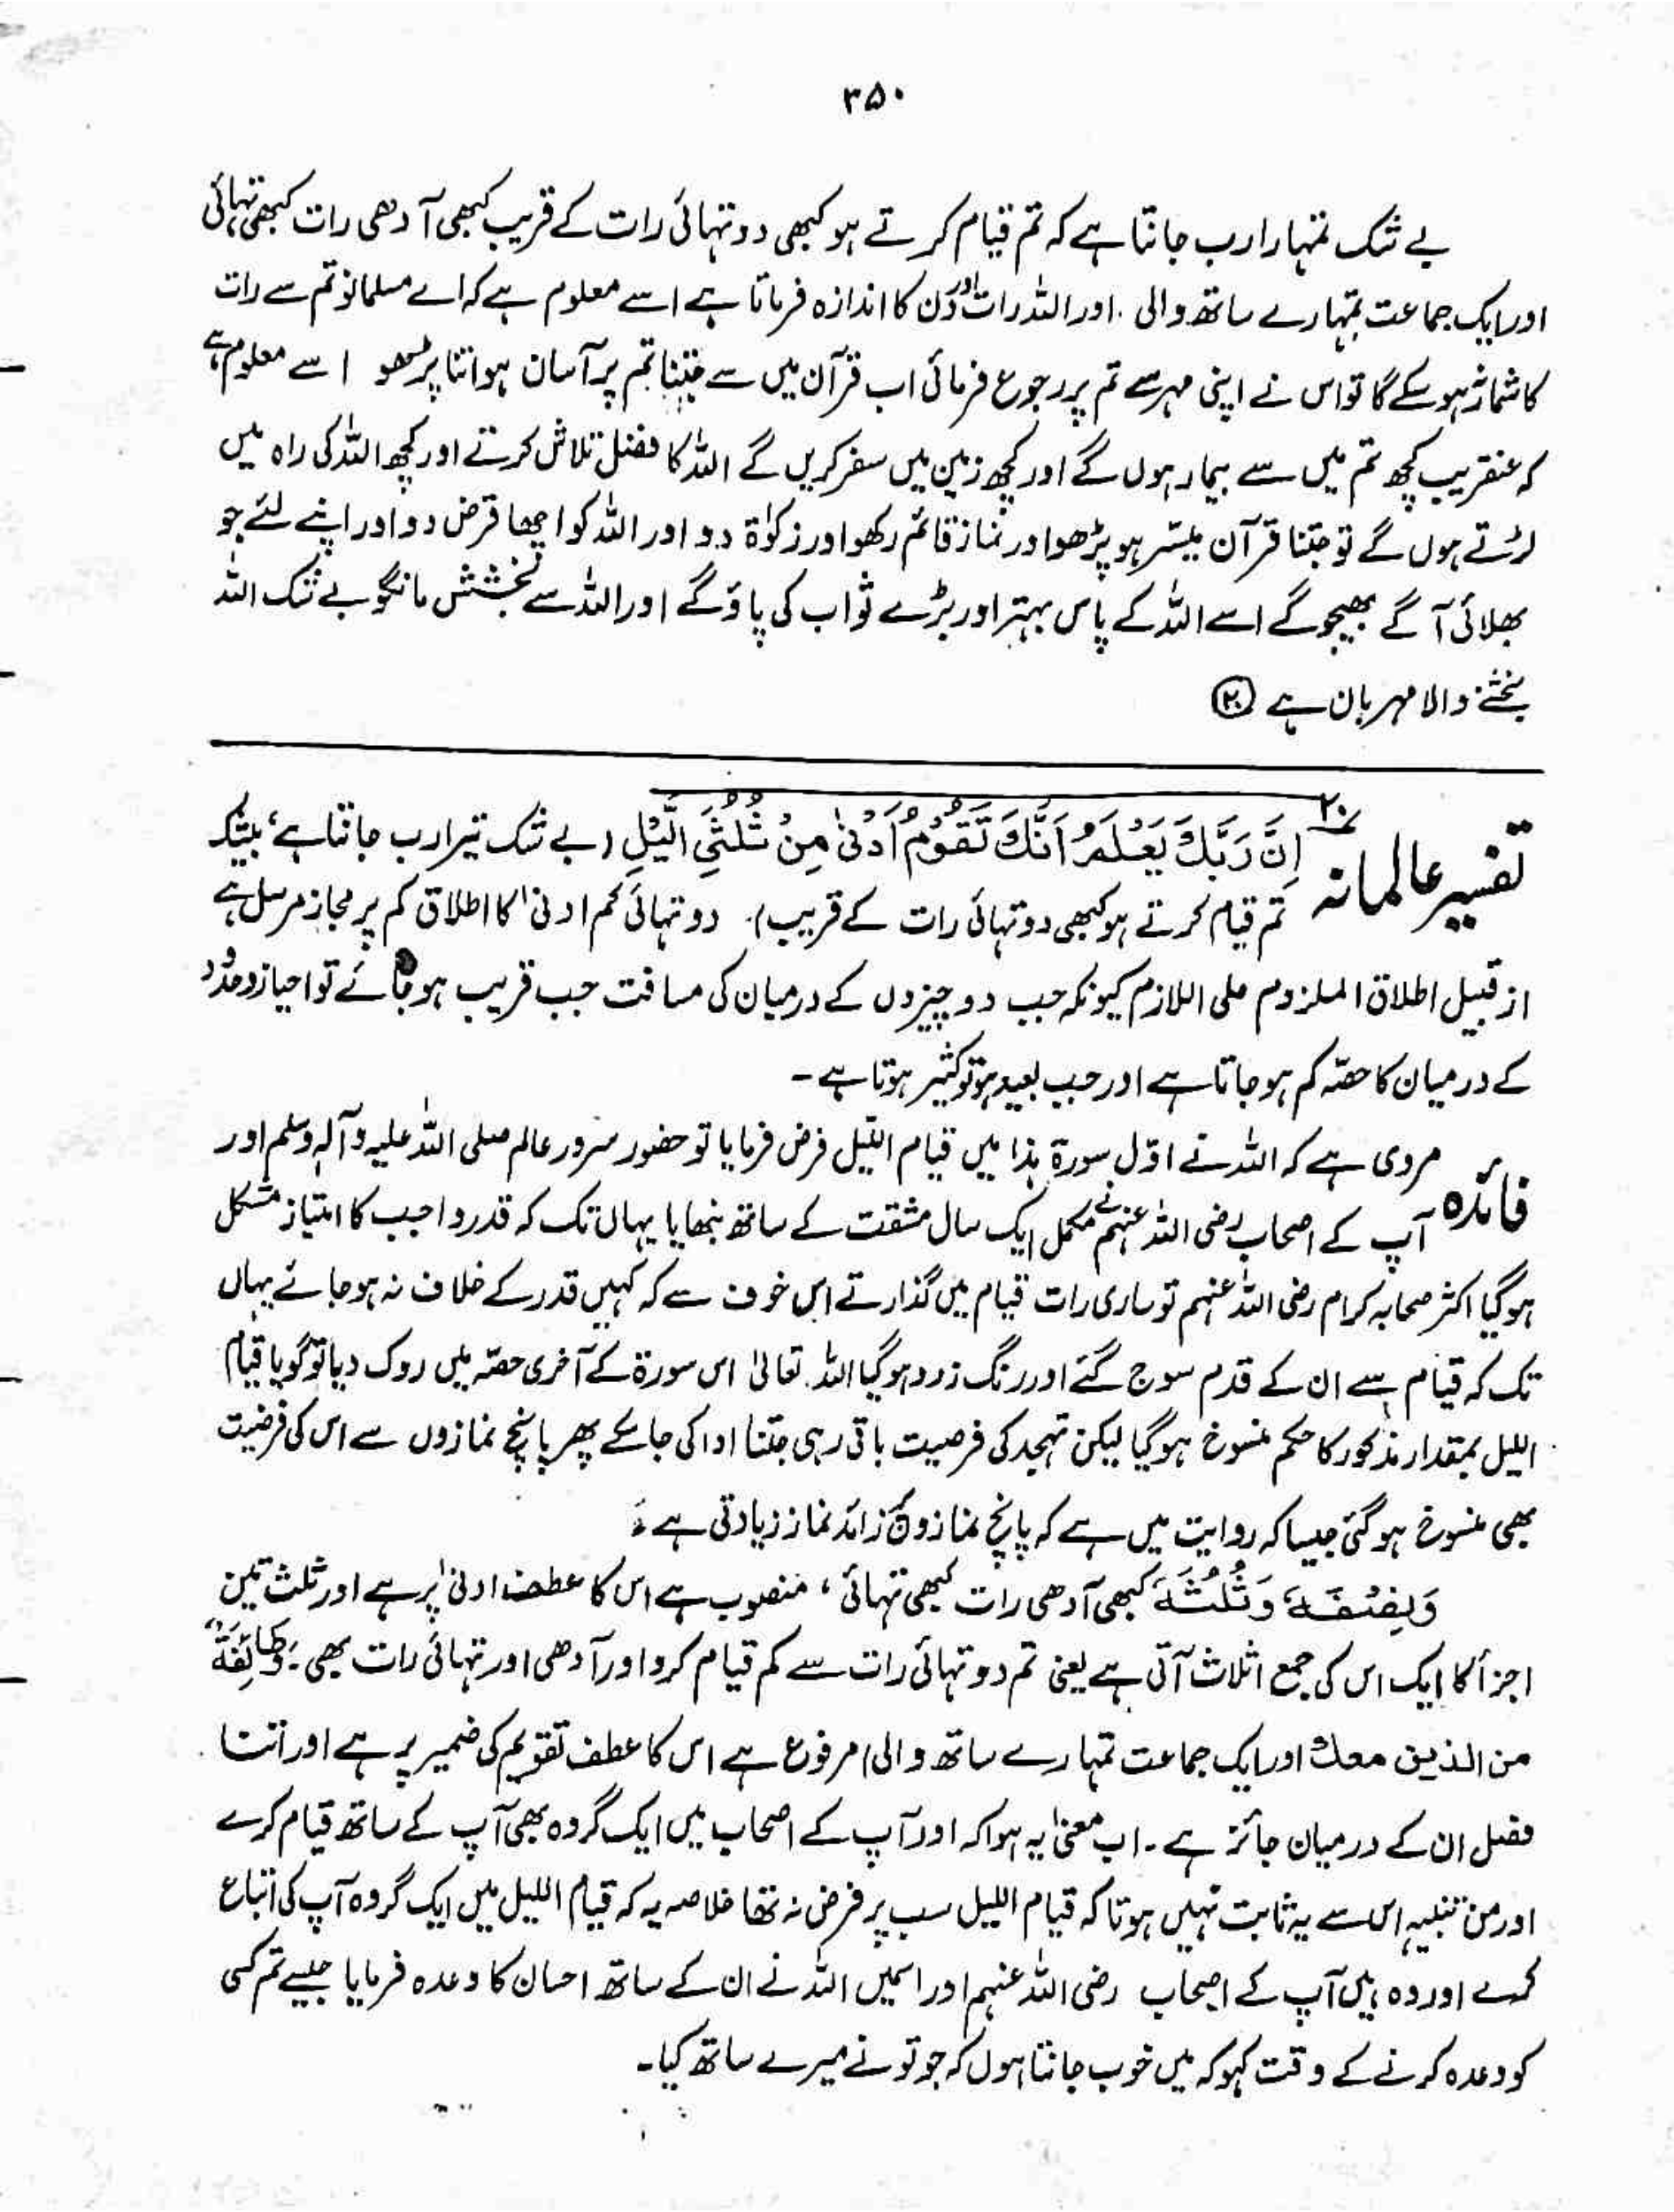 ۳۵۰
بے شک تمہارا رب جانتا ہے کہ تم قیام کرتے ہو کبھی دو تہائی رات کے قریب کبھی آدھی رات کبھی تہائی
اور ایک جماعت تمہارے ساتھ والی اور اللہ رات اور دن کا اندازہ فرماتا ہے اسے معلوم ہے کہ اے مسلمانو تم سے رات
کا شمار نہ ہو سکے گا تو اس نے اپنی مہر سے تم پر رجوع فرمائی اب قرآن میں سے جتنا تم پر آسان ہو اتنا پڑھو اسے معلوم ہے
کہ عنقریب کچھ تم میں سے بیمار ہوں گے اور کچھ زمین میں سفر کریں گے اللہ کا فضل تلاش کرتے اور کچھ اللہ کی راہ میں
لڑتے ہوں گے تو جتنا قرآن میسّر ہو پڑھو اور نماز قائم رکھو اور زکوٰۃ دو اور اللہ کو اچھا قرض دو اور اپنے لئے جو
بھلائی آگے بھیجو گے اسے اللہ کے پاس بہتر اور بڑے ثواب کی پاؤ گے اور اللہ سے بخشش مانگو بے شک اللہ
بخشنے والا مہربان ہے ۲۰
تفسیر عالمانہ ۲۰ اِنَّ رَبَّكَ يَعْلَمُ اَنَّكَ تَقُوْمُ اَدْنٰى مِنْ ثُلُثَيِ الَّيْلِ (بے شک تیرا رب جانتا ہے، بیشک
تم قیام کرتے ہو کبھی دو تہائی رات کے قریب)۔ دو تہائی کم ادنیٰ کا اطلاق کم پر مجاز مرسل ہے
از قبیل اطلاق الملزوم علی اللازم کیونکہ جب دو چیزوں کے درمیان کی مسافت جب قریب ہو جائے تو احیاز و حدود
کے درمیان کا حصّہ کم ہو جاتا ہے اور جب بعید ہو تو کثیر ہوتا ہے۔
فائدہ مروی ہے کہ اللہ نے اوّل سورۃ ہذا میں قیام اللّیل فرض فرمایا تو حضور سرور عالم صلی اللہ علیہ وآلہٖ وسلم اور
آپ کے اصحاب رضی اللہ عنہم نے مکمل ایک سال مشقت کے ساتھ نبھایا یہاں تک کہ قدر واجب کا امتیاز مشکل
ہو گیا اکثر صحابہ کرام رضی اللہ عنہم تو ساری رات قیام میں گذارتے اس خوف سے کہ کہیں قدر کے خلاف نہ ہو جائے یہاں
تک کہ قیام سے ان کے قدم سوج گئے اور رنگ زرد ہو گیا اللہ تعالیٰ اس سورۃ کے آخری حصّہ میں روک دیا تو گویا قیام
اللیل بمقدار مذکور کا حکم منسوخ ہو گیا لیکن تہجد کی فرضیت باقی رہی جتنا ادا کی جا سکے پھر پانچ نمازوں سے اس کی فرضیت
بھی منسوخ ہو گئی جیسا کہ روایت میں ہے کہ پانچ نمازوں زائد نماز زیادتی ہے
وَنِصْفَهٗ وَثُلُثَهٗ کبھی آدھی رات کبھی تہائی، منصوب ہے اس کا عطف ادنیٰ پر ہے اور ثلث تین
اجزأ کا ایک اس کی جمع اثلاث آتی ہے یعنی تم دو تہائی رات سے کم قیام کرو اور آدھی اور تہائی رات بھی۔ وَطَآئِفَةٌ
من الذین معك اور ایک جماعت تمہارے ساتھ والی) مرفوع ہے اس کا عطف تقویم کی ضمیر پر ہے اور اتنا
فصل ان کے درمیان جائز ہے۔ اب معنیٰ یہ ہوا کہ اور آپ کے اصحاب میں ایک گروہ بھی آپ کے ساتھ قیام کرے
اور من اس سے یہ ثابت نہیں ہوتا کہ قیام اللیل سب پر فرض نہ تھا خلاصہ یہ کہ قیام اللیل میں ایک گروہ آپ کی اتباع
کرے اور وہ ہیں آپ کے اصحاب رضی اللہ عنہم اور اسمیں اللہ نے ان کے ساتھ احسان کا وعدہ فرمایا جیسے تم کسی
کو وعدہ کرنے کے وقت کہو کہ میں خوب جانتا ہوں کہ جو تو نے میرے ساتھ کیا۔